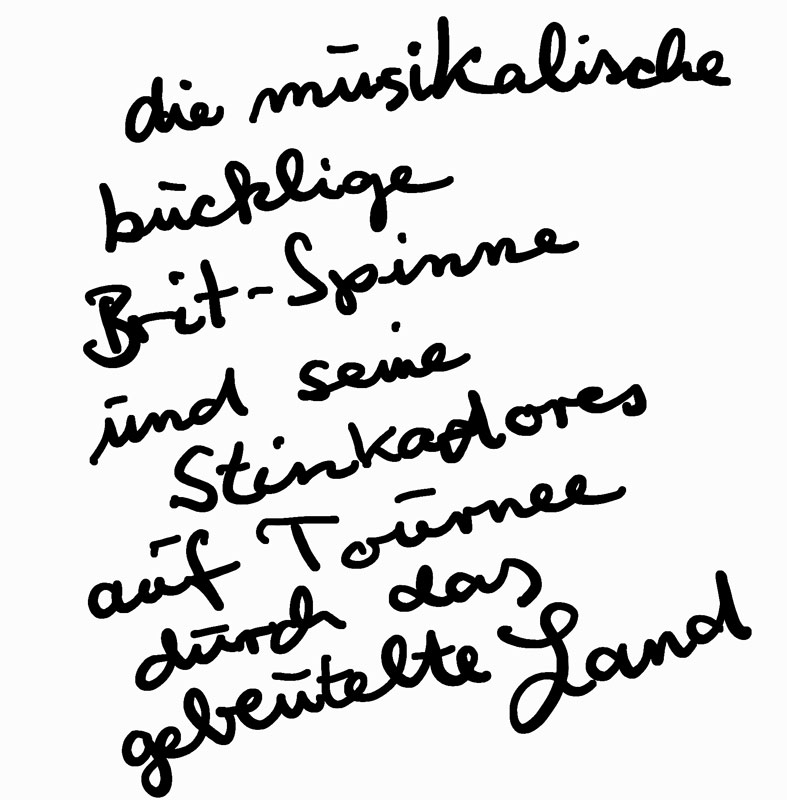 die musikalische
bucklige
Brit-Spinne
und seine
Stinkadores
auf Tournee
durch das
gebeutelte Land